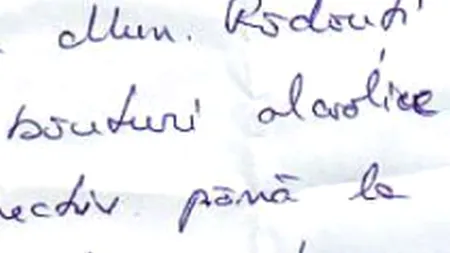 Mun. Rădăuți
băuturi alcolice
ectiv până la